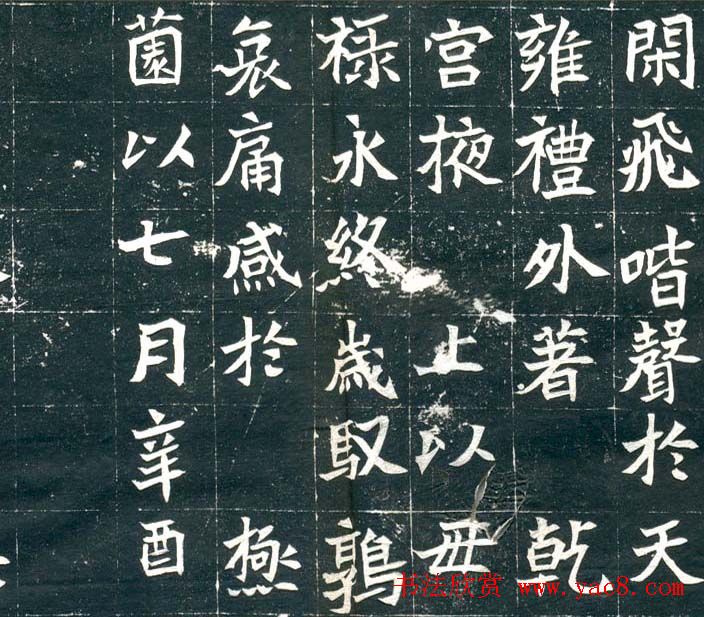 閑飛喈聲於天
雍禮外著乹
宮掖上以毋
祿永終歲馭鶉
哀痛感於極
菌以七月辛酉
书法欣赏 www.yac8.com